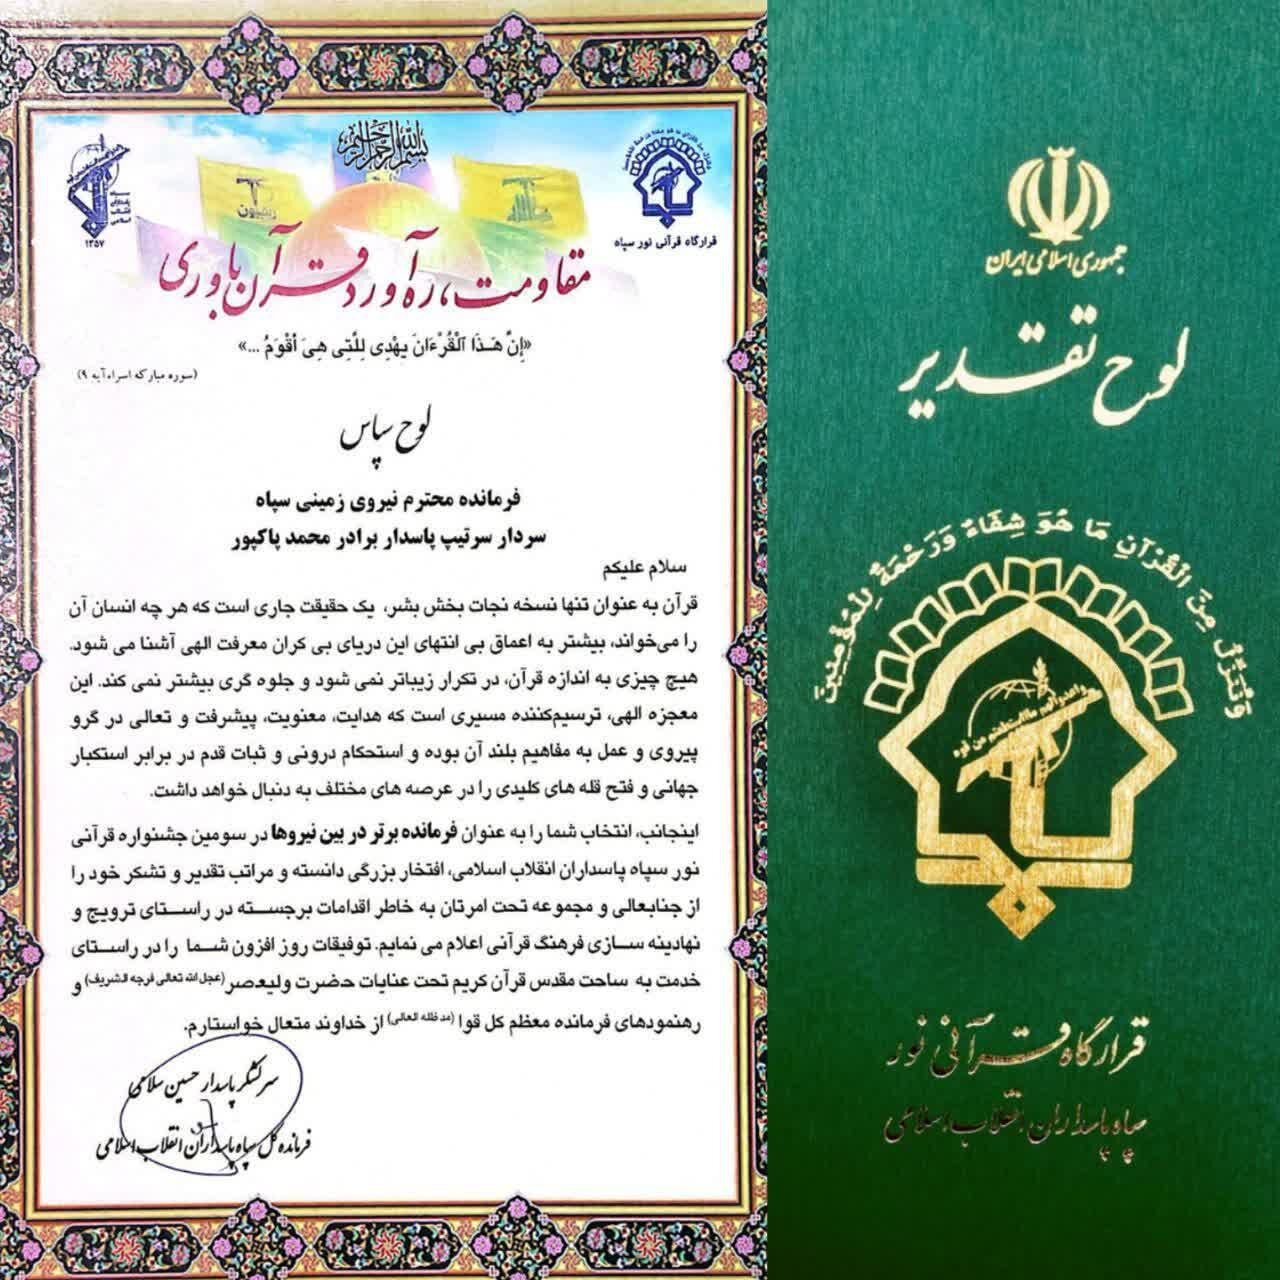 بسم الله الرحمن الرحیم
سپاه
پاسداران
انقلاب
اسلامی
۱۳۵۷
قرارگاه قرآنی نور سپاه
مقاومت، ره‌آورد قرآن باوری
«إِنَّ هَـٰذَا ٱلْقُرْءَانَ یِهْدِی لِلَّتِی هِیَ أَقْوَمُ ...»
(سوره مبارکه اسراء آیه ۹)
لوح سپاس
فرمانده محترم نیروی زمینی سپاه
سردار سرتیپ پاسدار برادر محمد پاکپور
سلام علیکم
قرآن به عنوان تنها نسخه نجات بخش بشر، یک حقیقت جاری است که هر چه انسان آن
را می‌خواند، بیشتر به اعماق بی انتهای این دریای بی کران معرفت الهی آشنا می شود.
هیچ چیزی به اندازه قرآن، در تکرار زیباتر نمی شود و جلوه گری بیشتر نمی کند. این
معجزه الهی، ترسیم‌کننده مسیری است که هدایت، معنویت، پیشرفت و تعالی در گرو
پیروی و عمل به مفاهیم بلند آن بوده و استحکام درونی و ثبات قدم در برابر استکبار
جهانی و فتح قله های کلیدی را در عرصه های مختلف به دنبال خواهد داشت.
اینجانب، انتخاب شما را به عنوان فرمانده برتر در بین نیروها در سومین جشنواره قرآنی
نور سپاه پاسداران انقلاب اسلامی، افتخار بزرگی دانسته و مراتب تقدیر و تشکر خود را
از جنابعالی و مجموعه تحت امرتان به خاطر اقدامات برجسته در راستای ترویج و
نهادینه سازی فرهنگ قرآنی اعلام می نمایم. توفیقات روز افزون شما را در راستای
خدمت به ساحت مقدس قرآن کریم تحت عنایات حضرت ولیعصر (عجل الله تعالی فرجه الشریف) و
رهنمودهای فرمانده معظم کل قوا (مد ظله العالی) از خداوند متعال خواستارم.
سرلشکر پاسدار حسین سلامی
فرمانده کل سپاه پاسداران انقلاب اسلامی
جمهوری اسلامی ایران
لوح تقدیر
وَنُنَزِّلُ مِنَ الْقُرْآنِ مَا هُوَ شِفَاءٌ وَرَحْمَةٌ لِلْمُؤْمِنِينَ
قرارگاه قرآنی نور
سپاه پاسداران انقلاب اسلامی